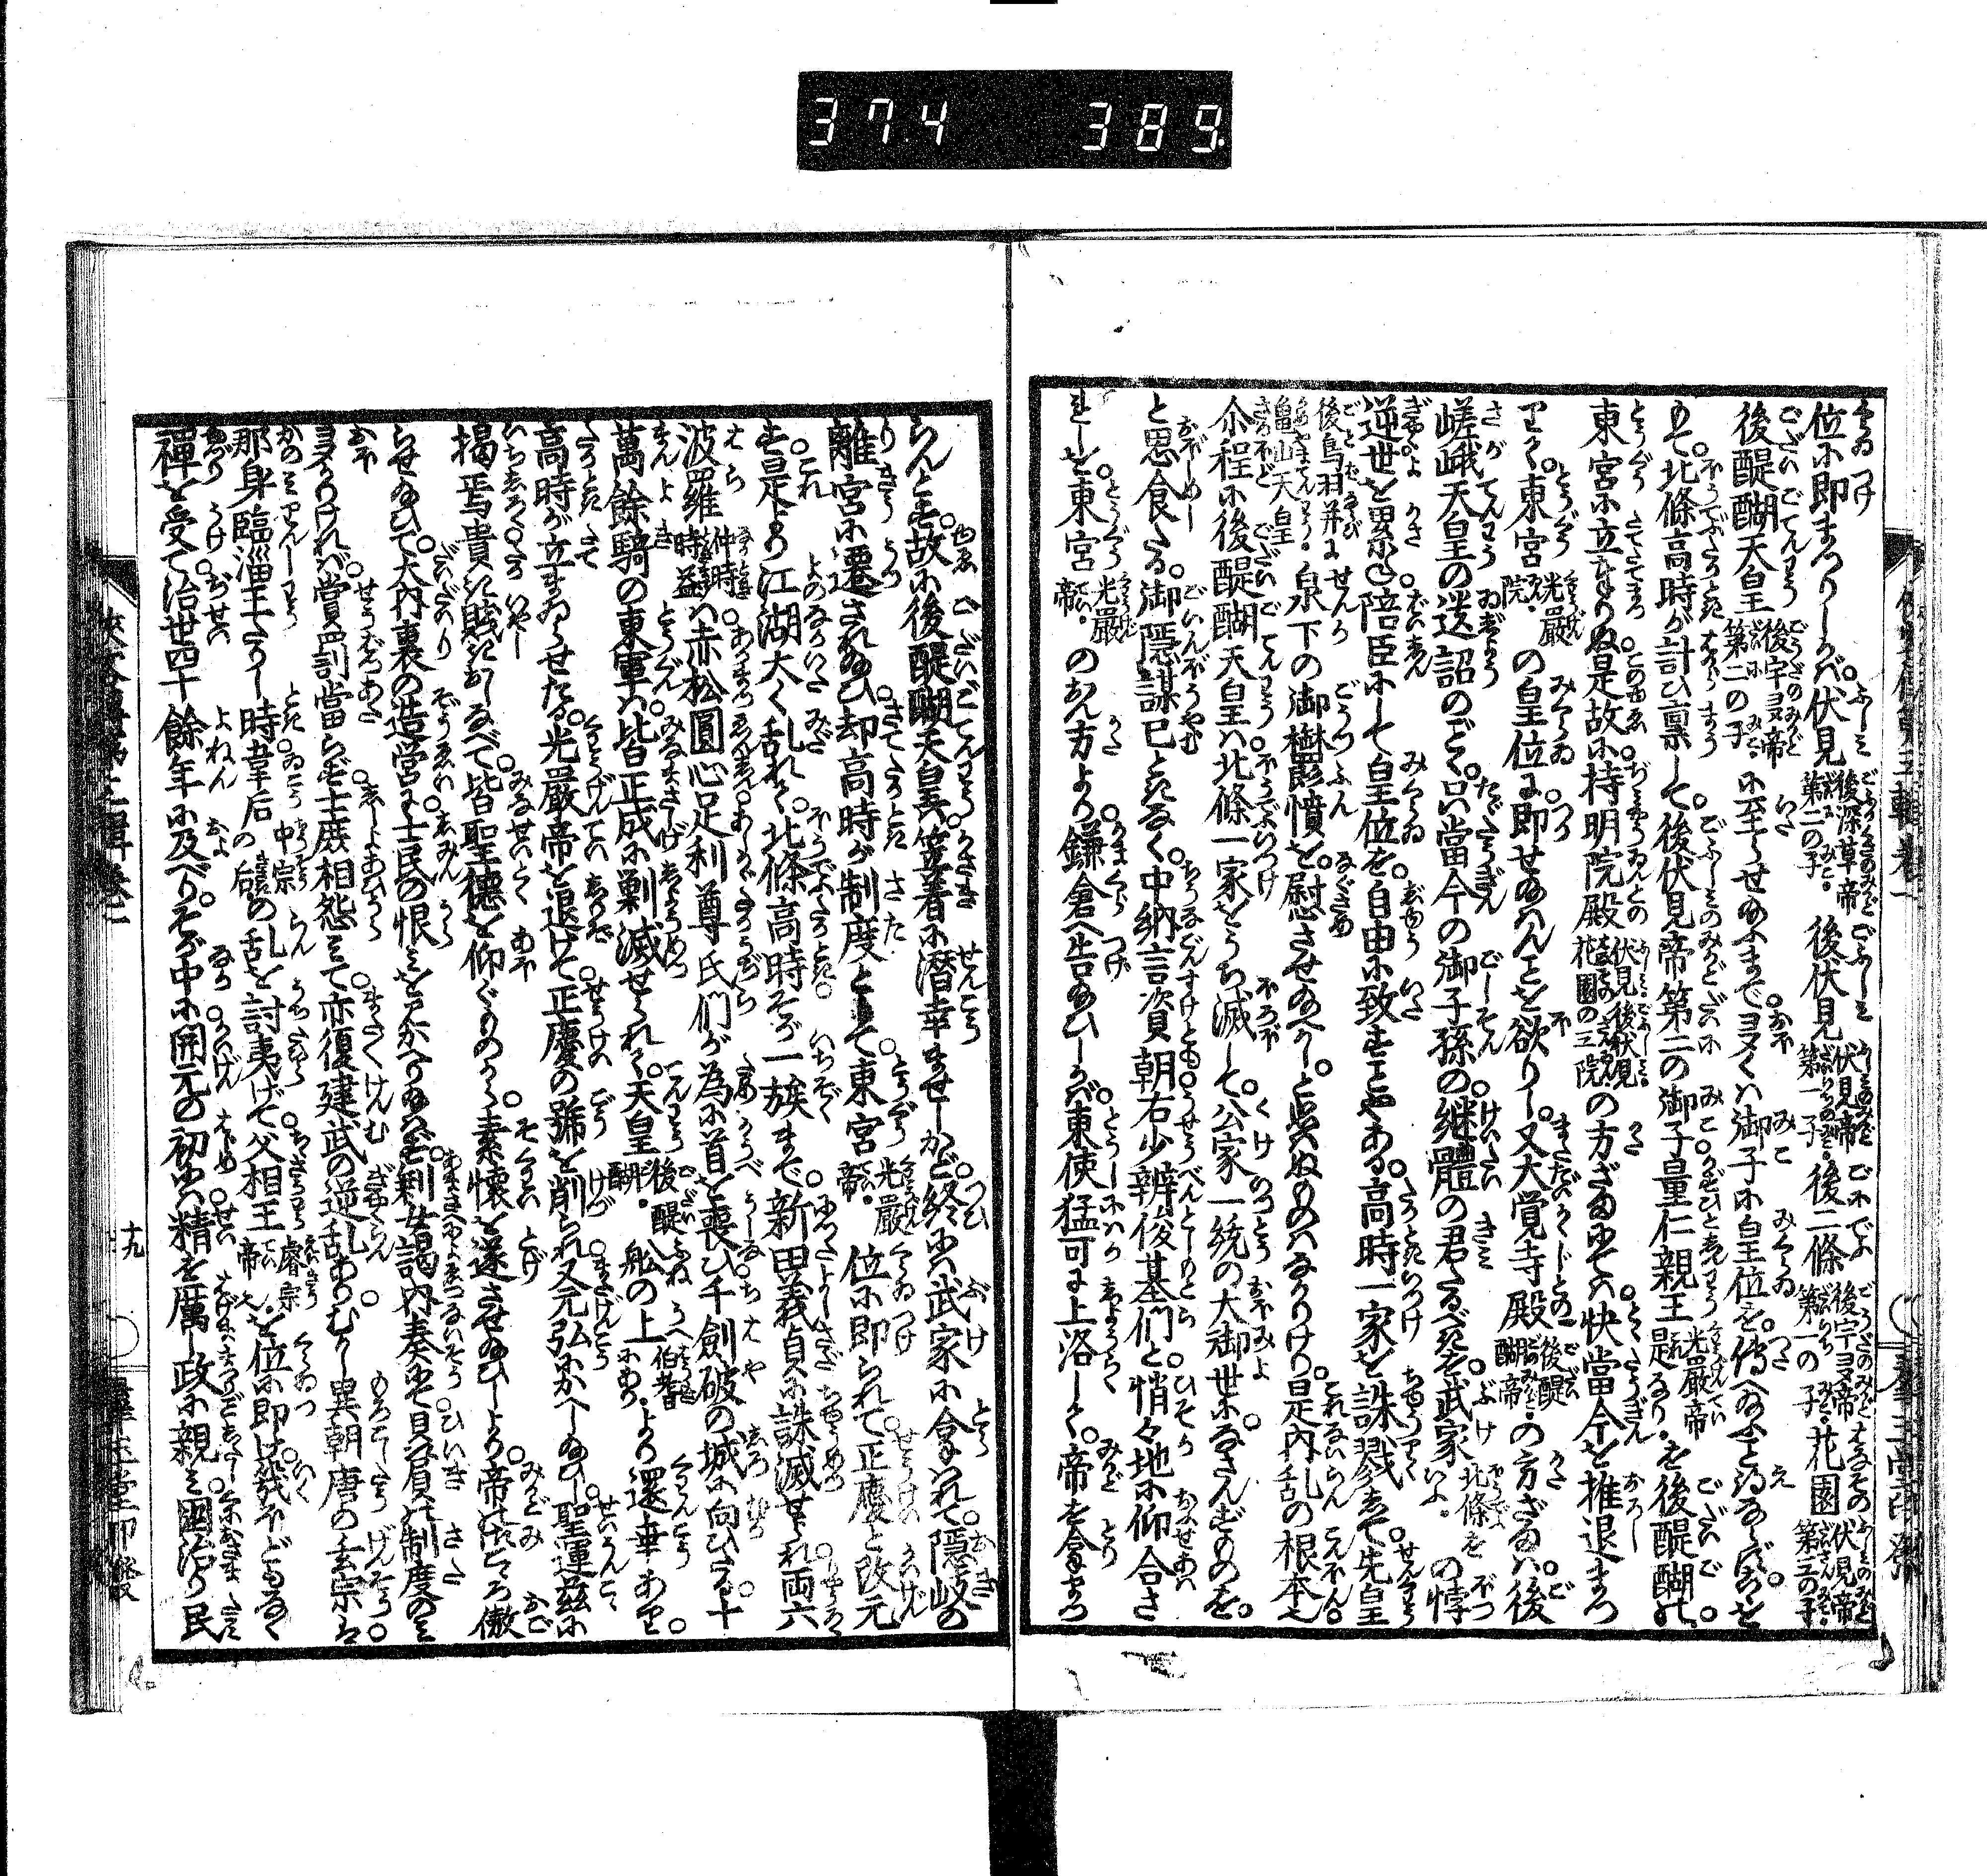 374 389
位に即まつりしかば。伏見後深草帝第二の子。後伏見伏見帝第一の子。後二條後宇多帝第一の子。花園伏見帝第三の子
後醍醐天皇後宇多帝第二の子。に至らせ給ふまで。多くは御子に皇位を。傳へ給ふことえならず。
もて。北條高時が計ひ稟して。後伏見帝第二の御子量仁親王光嚴帝是なり。を後醍醐の。
東宮に立まつりぬ。是故に。持明院殿伏見後伏見花園の三院の方ざまにては。快當今を推退まつ
りて。東宮光嚴院。の皇位に即せ給はんことを欲りし。又大覚寺殿後醍醐帝。の方ざまは。後
嵯峨天皇の遺詔のごとく。只當今の御子孫の。継體の君たるべきを。武家北條をいふ。の悖
逆世を累ね。陪臣にして皇位を。自由に致すことやある。高時一家を誅戮して。先皇
後鳥羽并に龜山天皇。泉下の御欝憤を。慰させ給へかし。と思はぬものはなかりけり。是内乱の根本也。
尒程に後醍醐天皇は。北條一家をうち滅して。公家一統の大御世に。なさんずものを。
と思食たる。御隠謀已ときなく。中納言資朝右少辨俊基們と。悄々地に仰合さ
れしを。東宮光嚴帝。のおん方より。鎌倉へ告給ひしかば。東使猛可に上洛して。帝を拿まつ
らんとす。故に後醍醐天皇。笠置に潜幸ませしかど。終には武家に拿はれて。隠岐の
離宮に遷され給ひ。却高時が制度として。東宮光嚴帝。位に即られて。正慶と改元
す。是より江湖大く乱れて。北條高時そが一族まで。新田義貞に誅滅せられ。両六
波羅仲時時益は。赤松圓心足利尊氏們が為に首を喪ひ。千劒破の城に向ひたる。十
萬餘騎の東軍は。皆正成に剿滅せられて。天皇後醍醐。舩の上伯耆にあり。より還幸あり。
高時が立まゐらせたる。光嚴帝を退けて。正慶の號を削られ。又元弘にかへし給ひし。聖運茲に
掲焉。貴き賤きおしなべて。皆聖徳を仰ぐものから。素懷を遂させ給ひしより。帝はこころ傲
らせ給ひて。大内裏の造営に。士民の恨みをかへり給はず。剰女謁内奏にて。贔屓の制度のみ
多かりければ。賞罰當らず。士庶相怨みて。亦復建武の逆乱ありむかし異朝唐の玄宗は
那身臨淄王たりし時。韋后中宗の后の乱を討夷げて。父相王睿宗帝也。を位に即け。幾ほどもなく
禪を受て。治世四十餘年に及べり。そが中に。開元の初には。精を厲し政に親み。國治り民
十九